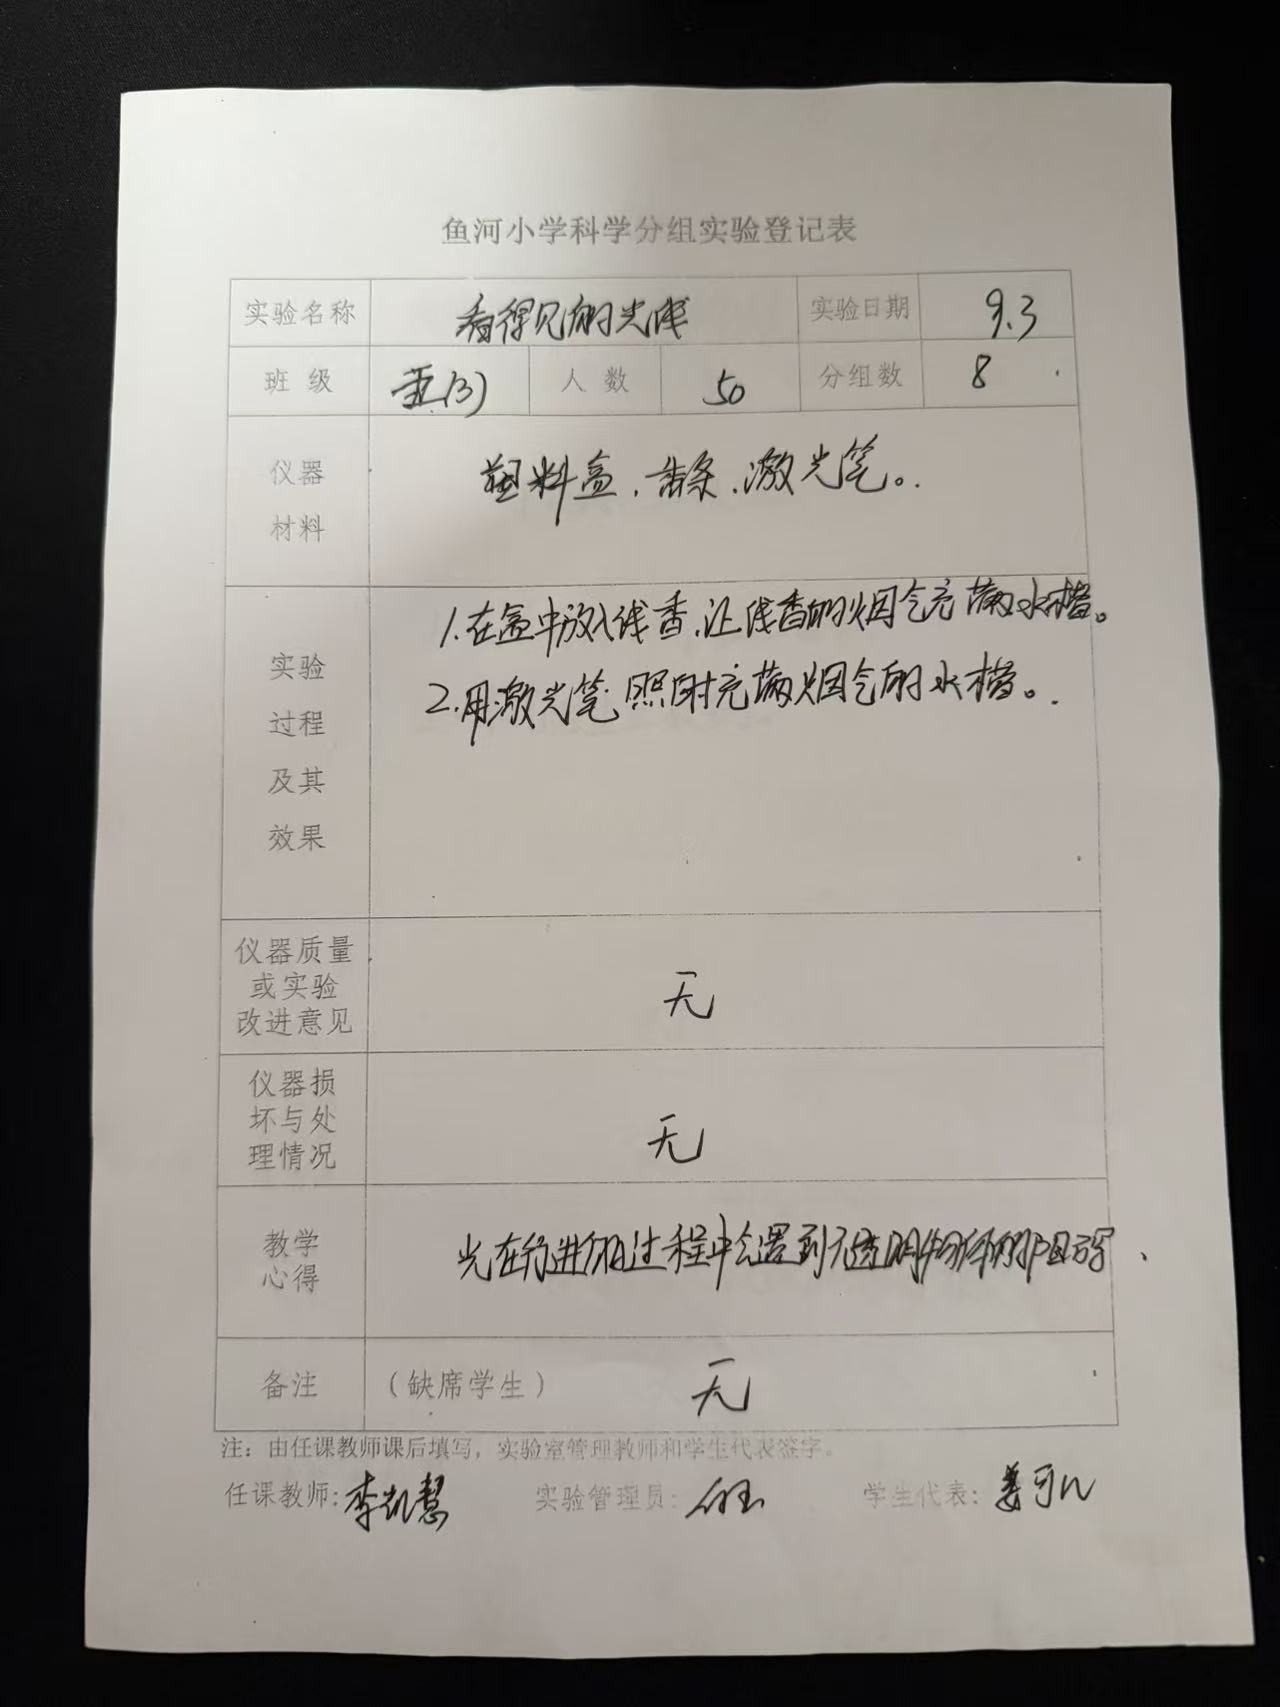 鱼河小学科学分组实验登记表
实验名称 看得见的光线 实验日期 9.3
班 级 五(3) 人 数 50 分组数 8
仪器 塑料盒、香条、激光笔。
材料
1.在盒中放入线香,让线香的烟气充满水槽。
2.用激光笔照射充满烟气的水槽。
实验
过程
及其
效果
仪器质量
或实验 无
改进意见
仪器损
坏与处 无
理情况
教学 光在行进的过程中会遇到不透明物体的阻碍、
心得
备注 (缺席学生) 无
注:由任课教师课后填写,实验室管理教师和学生代表签字。
任课教师:李凯慧 实验管理员: 学生代表:姜可